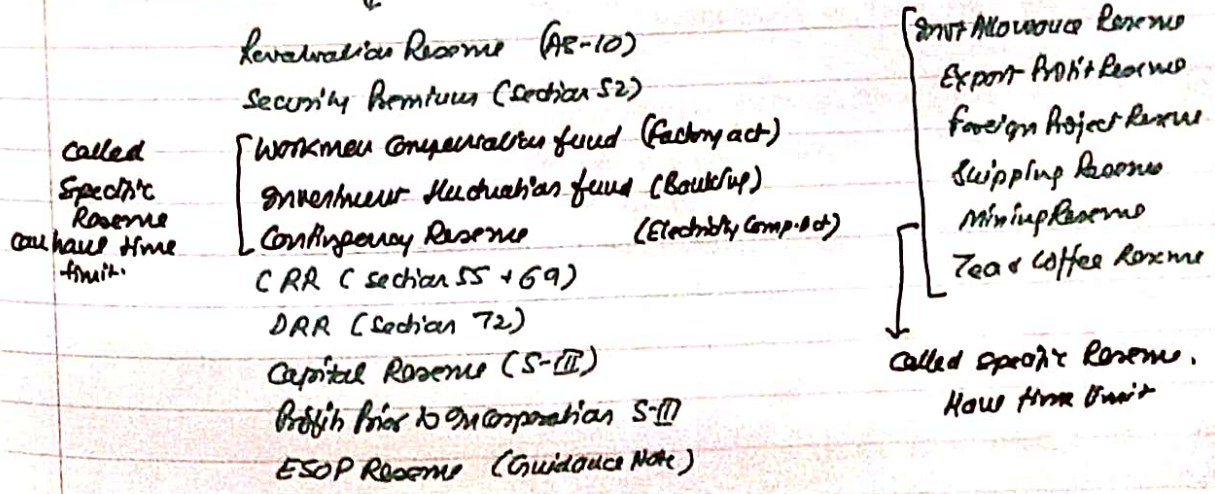 Revaluation Reserve (AS-10)
Security Premium (Section 52)
Workmen Compensation fund (Factory act)
Investment fluctuation fund (Banking)
Contingency Reserve (Electricity Comp. Act)
called
Specific
Reserve
can have time
limit.
CRR (section 55 + 69)
DRR (Section 72)
Capital Reserve (S-III)
Profit Prior to Incorporation S-III
ESOP Reserve (Guidance Note)
Invt Allowance Reserve
Export Profit Reserve
foreign Project Reserve
Shipping Reserve
Mining Reserve
Tea & Coffee Reserve
called specific Reserve.
Have time limit